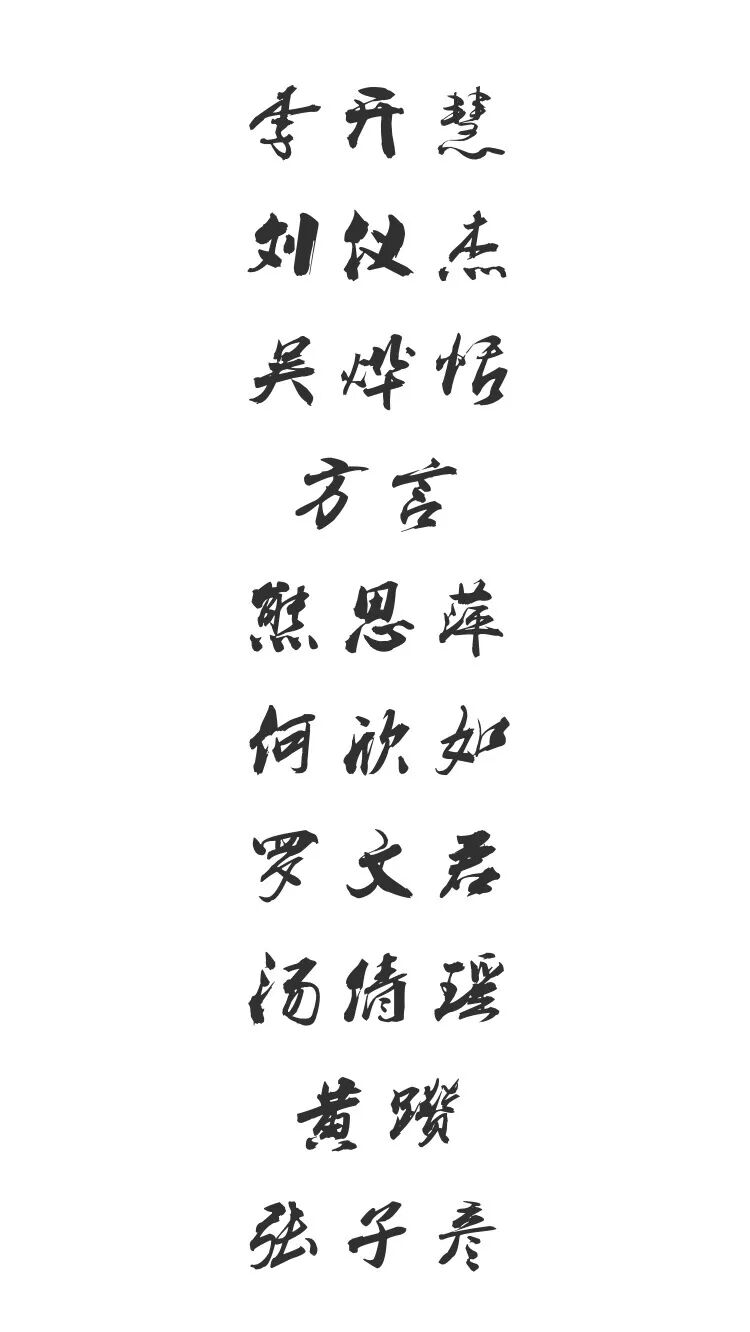 李开慧
刘仪杰
吴烨恬
方言
熊思萍
何欣如
罗文君
汤倩瑶
黄躜
张子彦